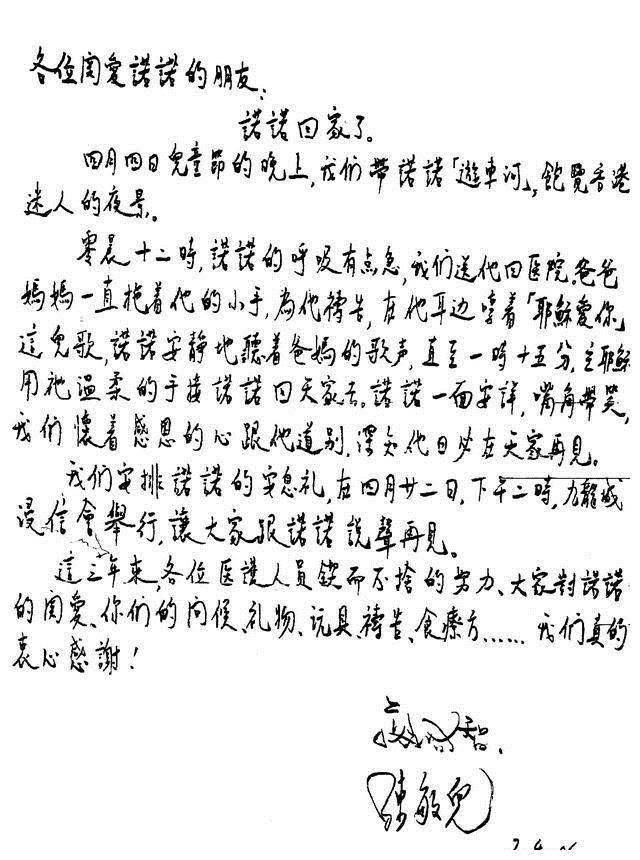 各位関愛諾諾的朋友：
諾諾回家了。
四月四日兒童節的晚上，我们帶諾諾「遊車河」，飽覽香港
迷人的夜景。
零晨十二時，諾諾的呼吸有点急，我们送他回医院。爸爸
媽媽一直拖着他的小手，為他禱告，在他耳边唱着「耶穌愛你」
這兒歌，諾諾安静地聽着爸媽的歌声，直至一時十五分，主耶穌
用祂温柔的手接諾諾回天家去。諾諾一面安詳，嘴角帶笑，
我们懷着感恩的心跟他道别，深知他日必在天家再見。
我们安排諾諾的安息礼，在四月廿二日，下午二時，九龍城
浸信會舉行，讓大家跟諾諾說聲再見。
這三年来，各位医護人員鍥而不捨的努力、大家對諾諾
的関愛、你们的问候、礼物、玩具、禱告、食療方……我们真的
衷心感謝！
陳敏兒